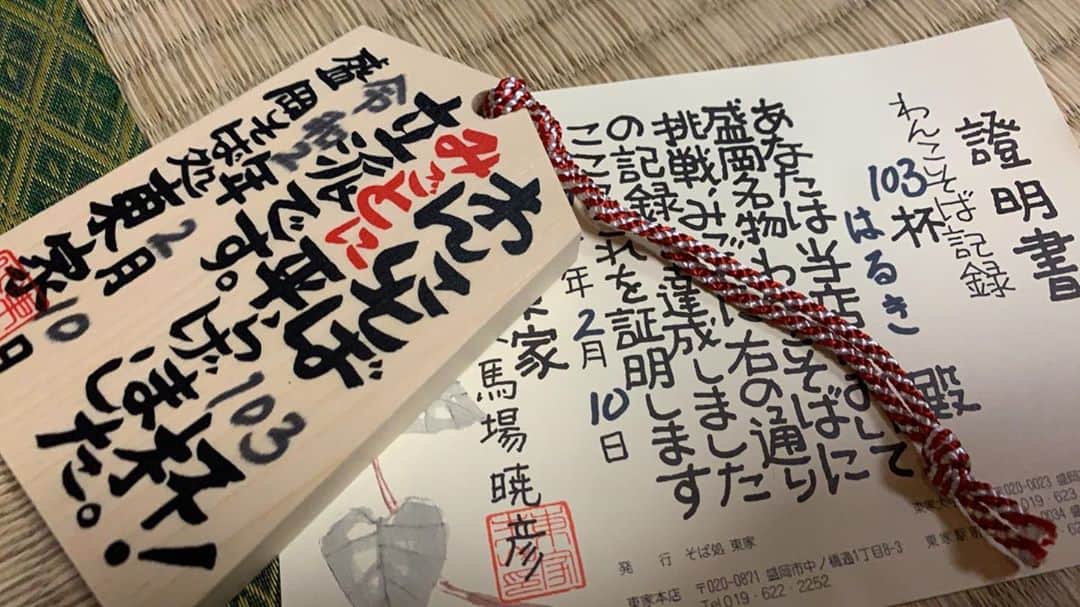 わんこそば 103杯!
みごとに
です。
げました。
令和2年2月10日
そば処東家
證明書
わんこそば記録
103杯
はるき 殿
あなたは当店 して
盛岡名物わ こそばに
挑戦みご 右の通り
の記録 達成しました
ここ れを証明します
年2月10日
家
馬場暁彦
発行 そば処 東家
東家本店 〒020-0871 盛岡市中ノ橋通1丁目8-3
Tel 019・622・2252
〒020-0023 盛岡
019・623